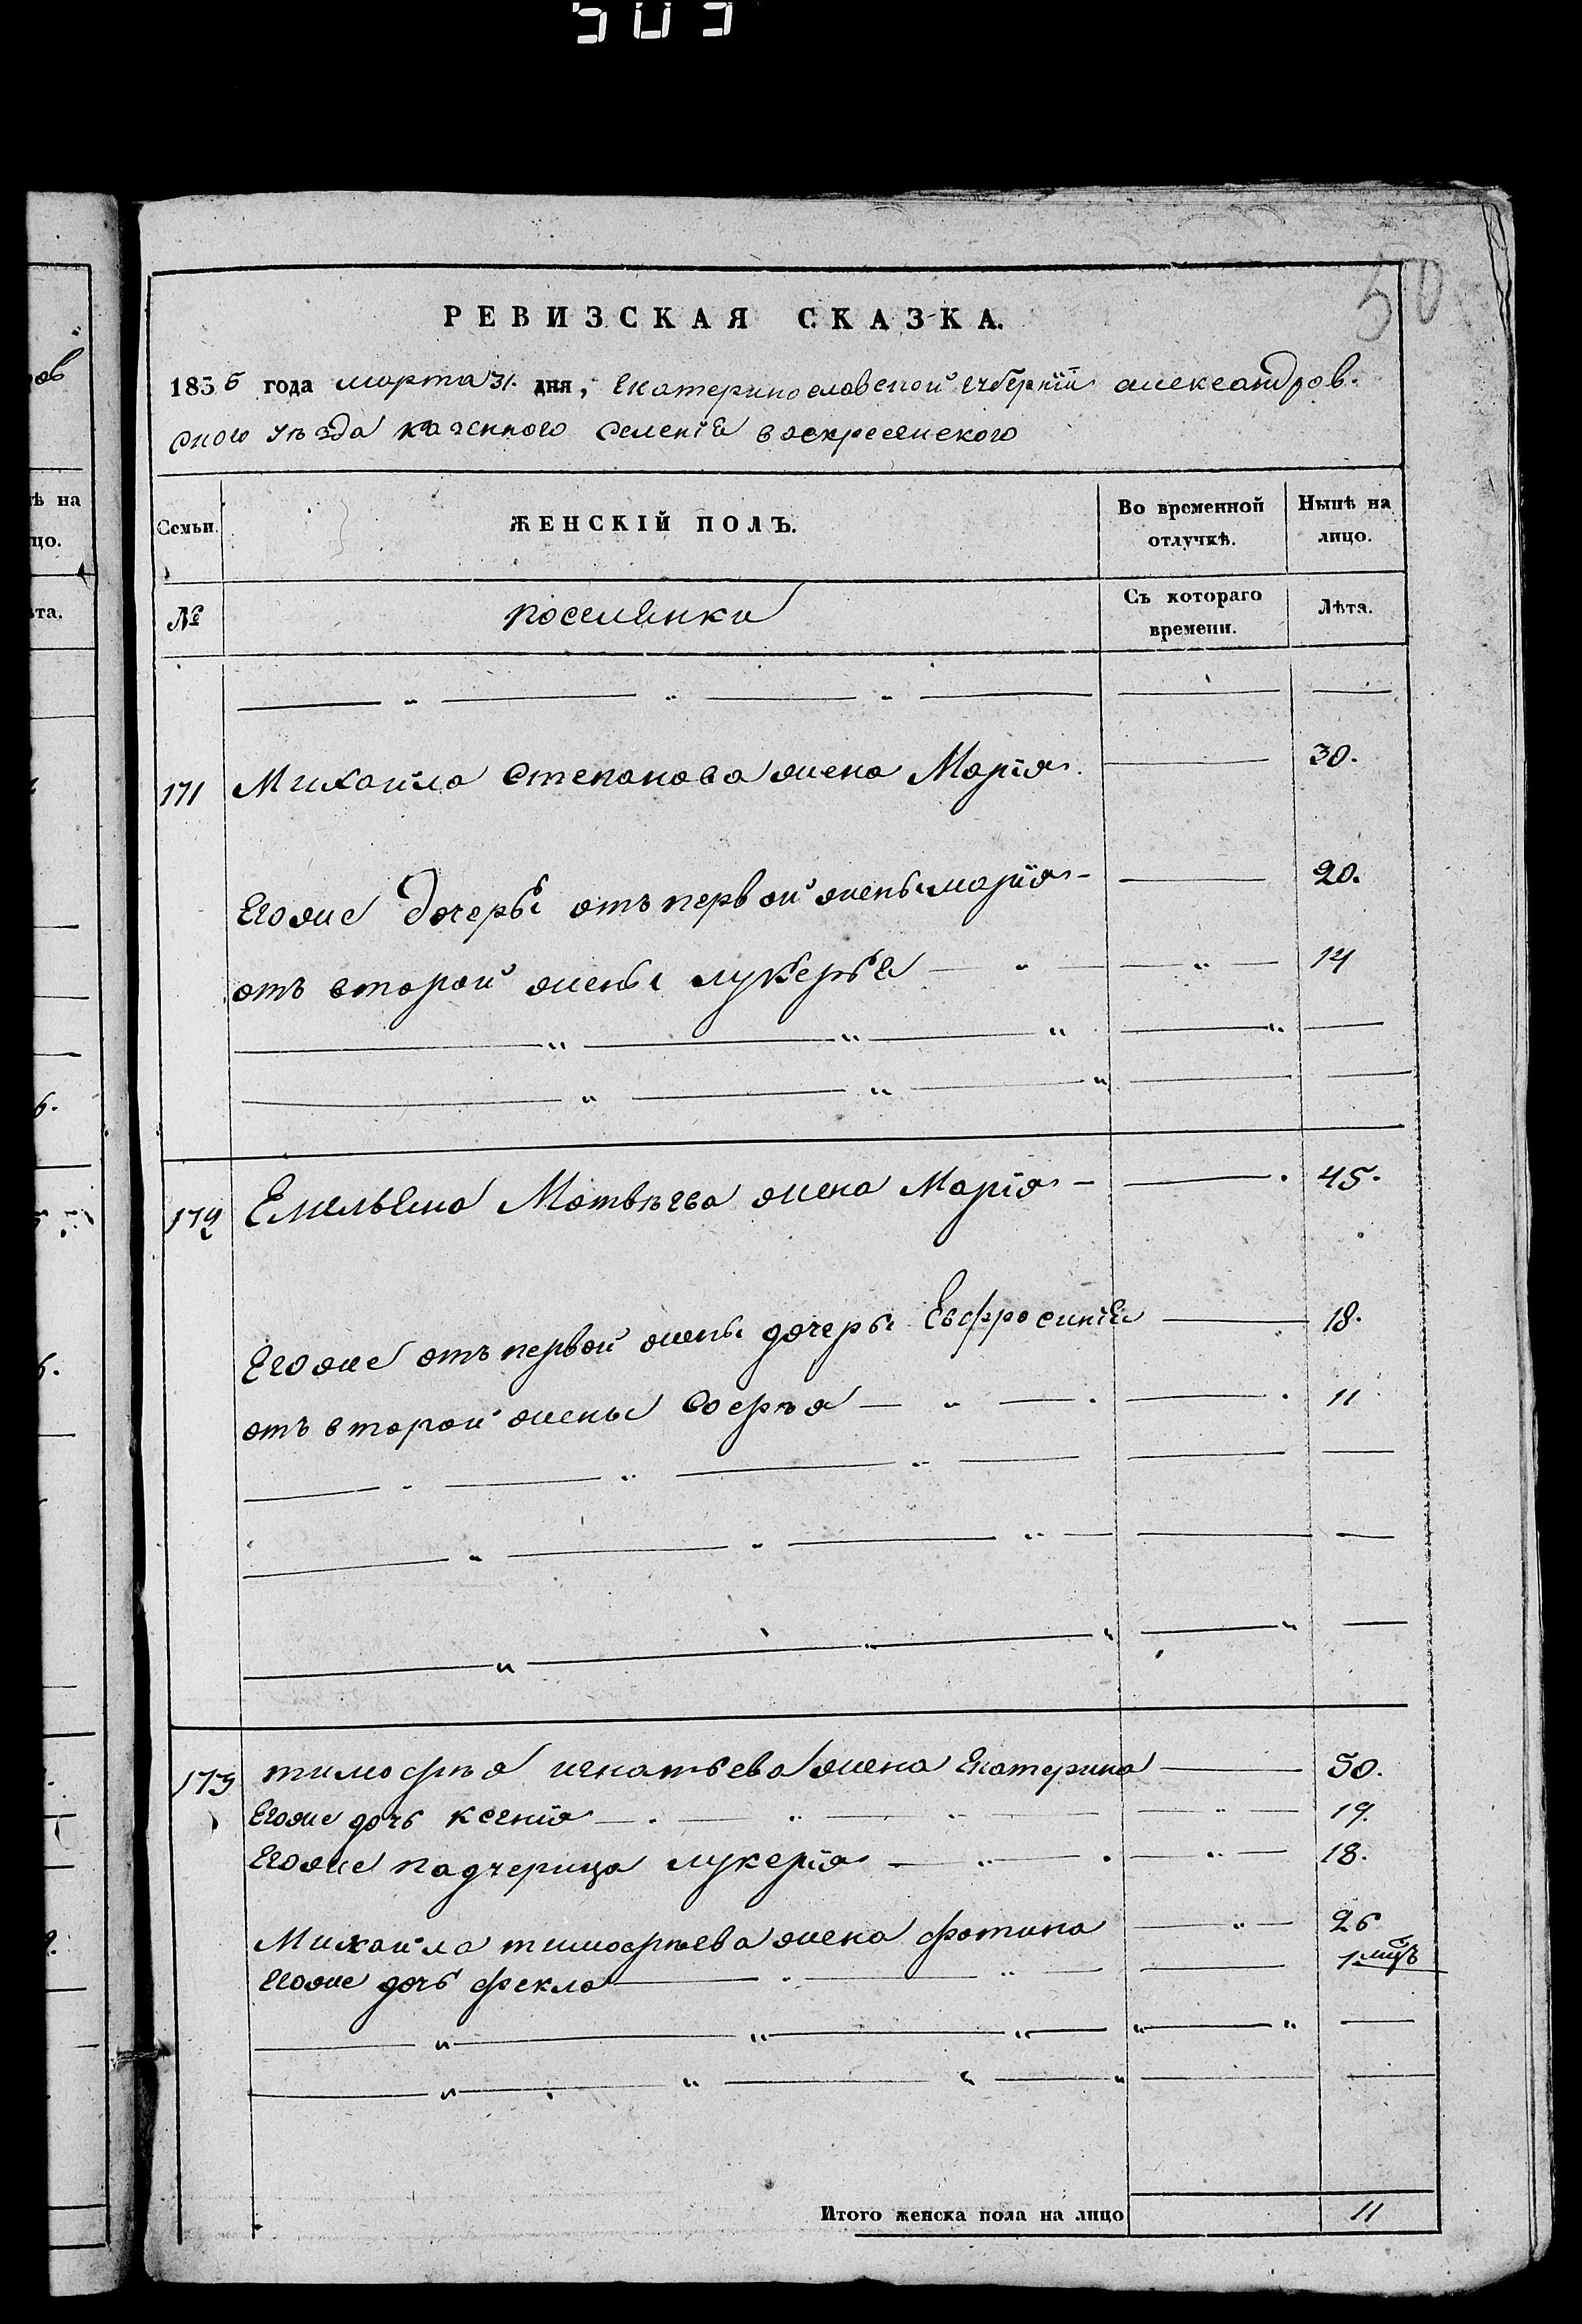 503
50
РЕВИЗСКАЯ СКАЗКА.
1835 года марта 31. дня, Екатеринославской губернiи александров-
скаго уѣзда казеннаго селенiя воскресенскаго
Семьи. ЖЕНСКIЙ ПОЛЪ. Во временной отлучкѣ. Нынѣ на лицо.
№ поселянки Съ котораго времени. Лѣта.
171 Михайла Степанова жена Марiя. 30.
Егоже дочеры отъ первой жены марiя 20.
отъ второй жены лукерья 14
172 Емельяна Матвѣева жена Марiя 45.
Егоже отъ первой жены дочеры Евфросинiя 18.
отъ второй жены Софья 11
173 тимофѣя игнатьева жена Екатерина 50.
Егоже дочь ксенiя 19.
Егоже падчерица лукерiя 18.
Михайла тимофѣева жена фотина 26
Егоже дочь фекла 1 мцъ
Итого женска пола на лицо 11
ов
ѣ на
цо.
ѣта.
6.